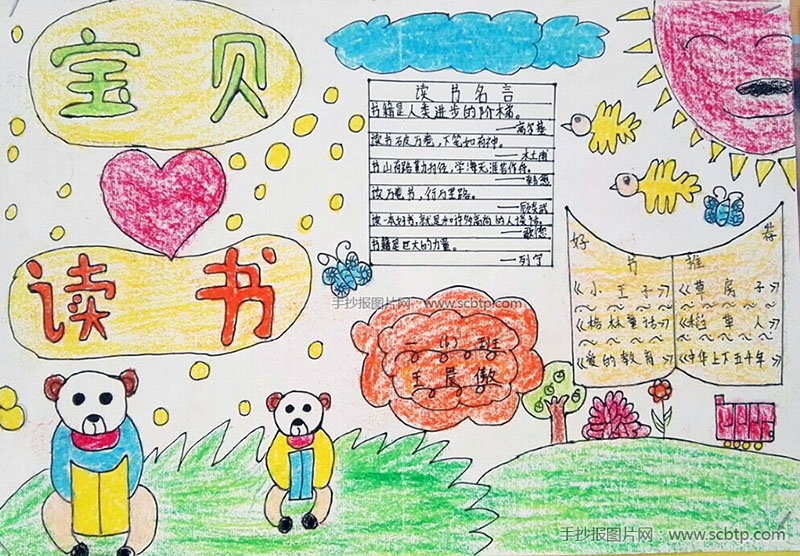 宝贝
读书
读书名言
书籍是人类进步的阶梯。
——高尔基
读书破万卷,下笔如有神。
——杜甫
书山有路勤为径,学海无涯苦作舟。
——韩愈
读万卷书,行万里路。
——顾炎武
读一本好书,就是和许多高尚的人谈话。
——歌德
书籍是巨大的力量。
——列宁
手抄报图片网：www.scbtp.com
好书推荐
《小王子》《草房子》
《格林童话》《稻草人》
《爱的教育》《中华上下五千年》
班
王晨傲
手抄报图片网：www.scbtp.com